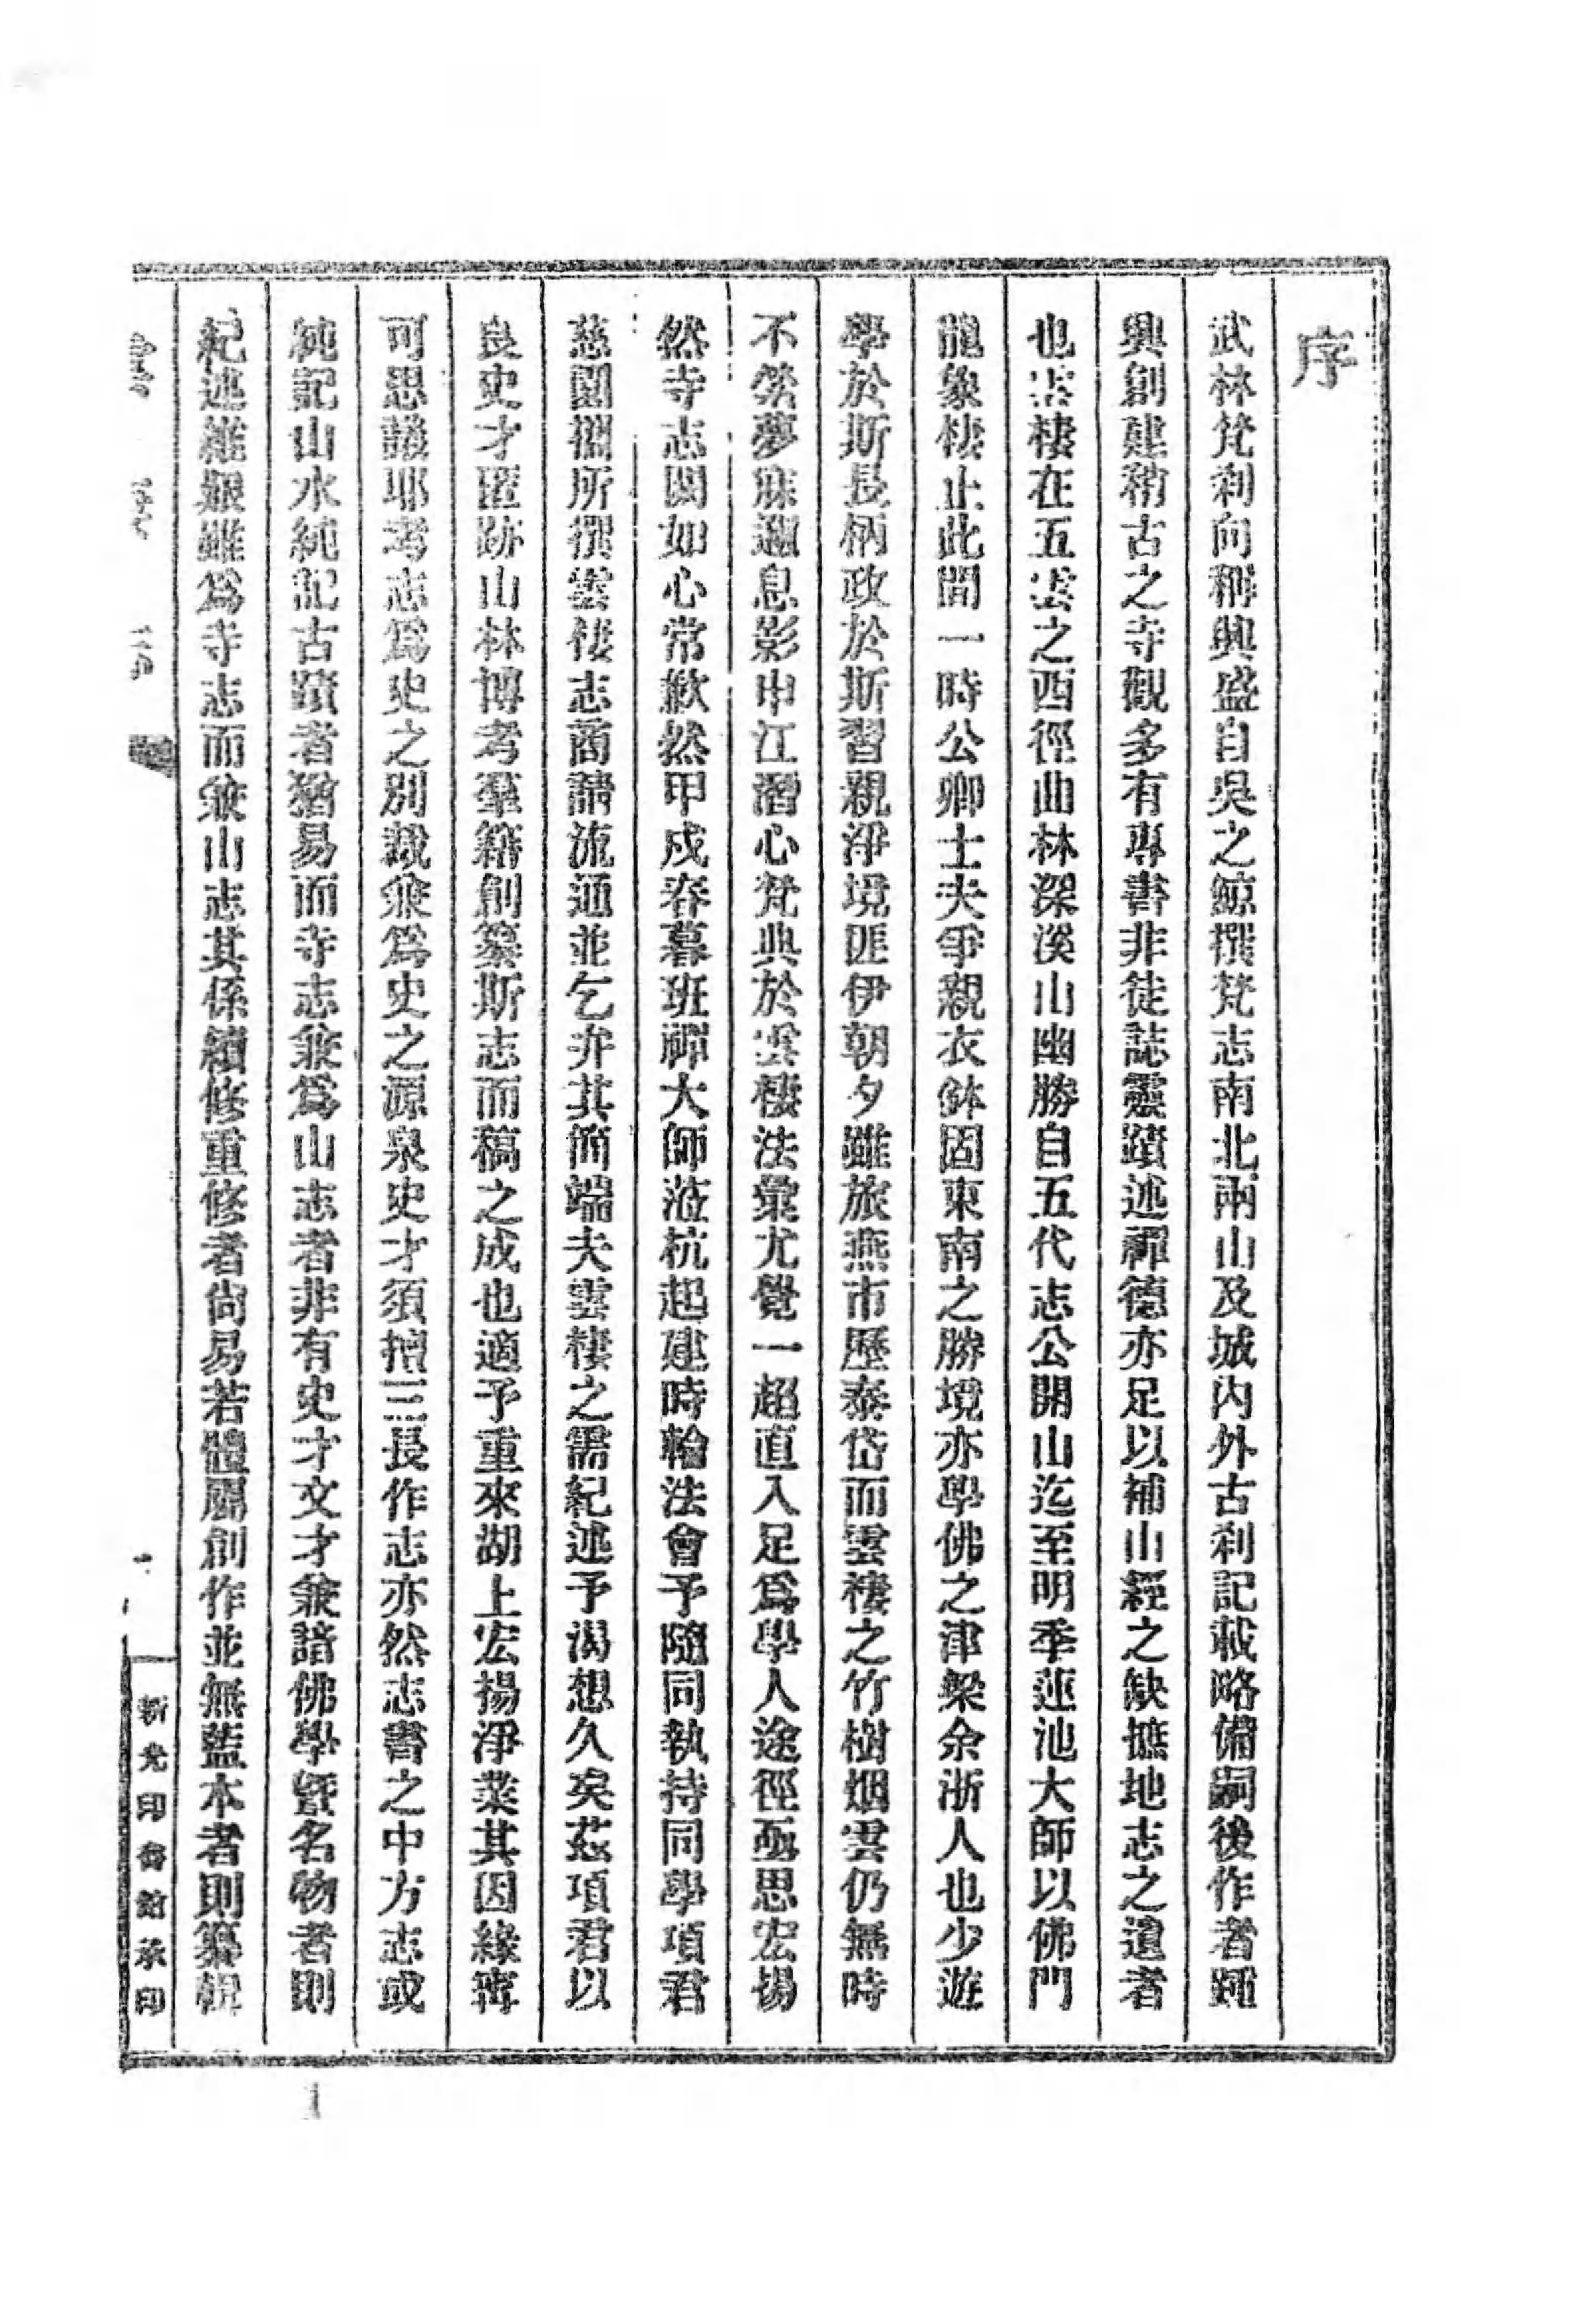 序
武林梵刹向稱興盛自吳之鯨撰梵志南北兩山及城內外古刹記載略備嗣後作者踵
興創建稽古之寺觀多有專書非徒誌靈蹟述禪德亦足以補山經之缺摭地志之遺者
也雲棲在五雲之西徑曲林深溪山幽勝自五代志公開山迄至明季蓮池大師以佛門
龍象棲止此間一時公卿士夫爭親衣鉢固東南之勝境亦學佛之津梁余浙人也少遊
學於斯長柄政於斯習親淨境匪伊朝夕雖旅燕市歷泰岱而雲棲之竹樹烟雲仍無時
不縈夢寐迴息影申江潛心梵典於雲棲法彙尤覺一超直入足爲學人途徑亟思宏揚
然寺志闕如心常歉然甲戌春暮班禪大師蒞杭起建時輪法會予隨同執持同學項君
慈園擱所撰雲棲志商請流通並乞弁其簡端夫雲棲之需紀述予渴想久矣茲項君以
良史才匿跡山林博考羣籍創纂斯志而稿之成也適予重來湖上宏揚淨業其因緣寗
可思議耶考志爲史之別裁兼爲史之源泉史才須擅三長作志亦然志書之中方志或
純記山水純記古蹟者猶易而寺志兼爲山志者非有史才文才兼諳佛學曁名物者則
紀述維艱雖爲寺志而兼山志其係續修重修者尙易若體屬創作並無藍本者則纂輯
一
新光印書館承印
1